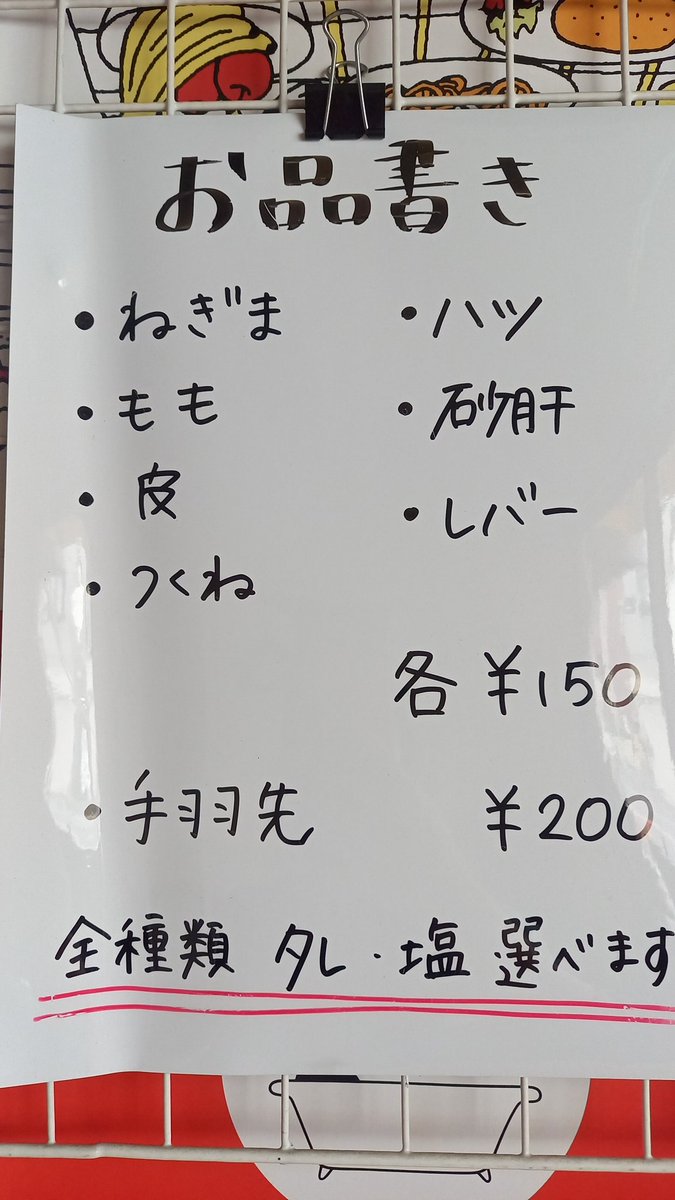 お品書き
・ねぎま ・ハツ
・もも ・砂肝
・皮 ・レバー
・つくね
各 ¥150
・手羽先 ¥200
全種類 タレ・塩 選べます